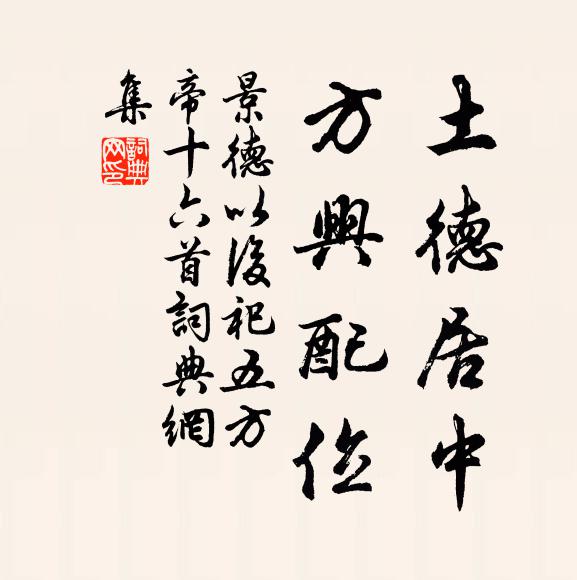 土德居中
方輿配位
景德以後祀五方
帝十六首詞典網
集
詞典網印